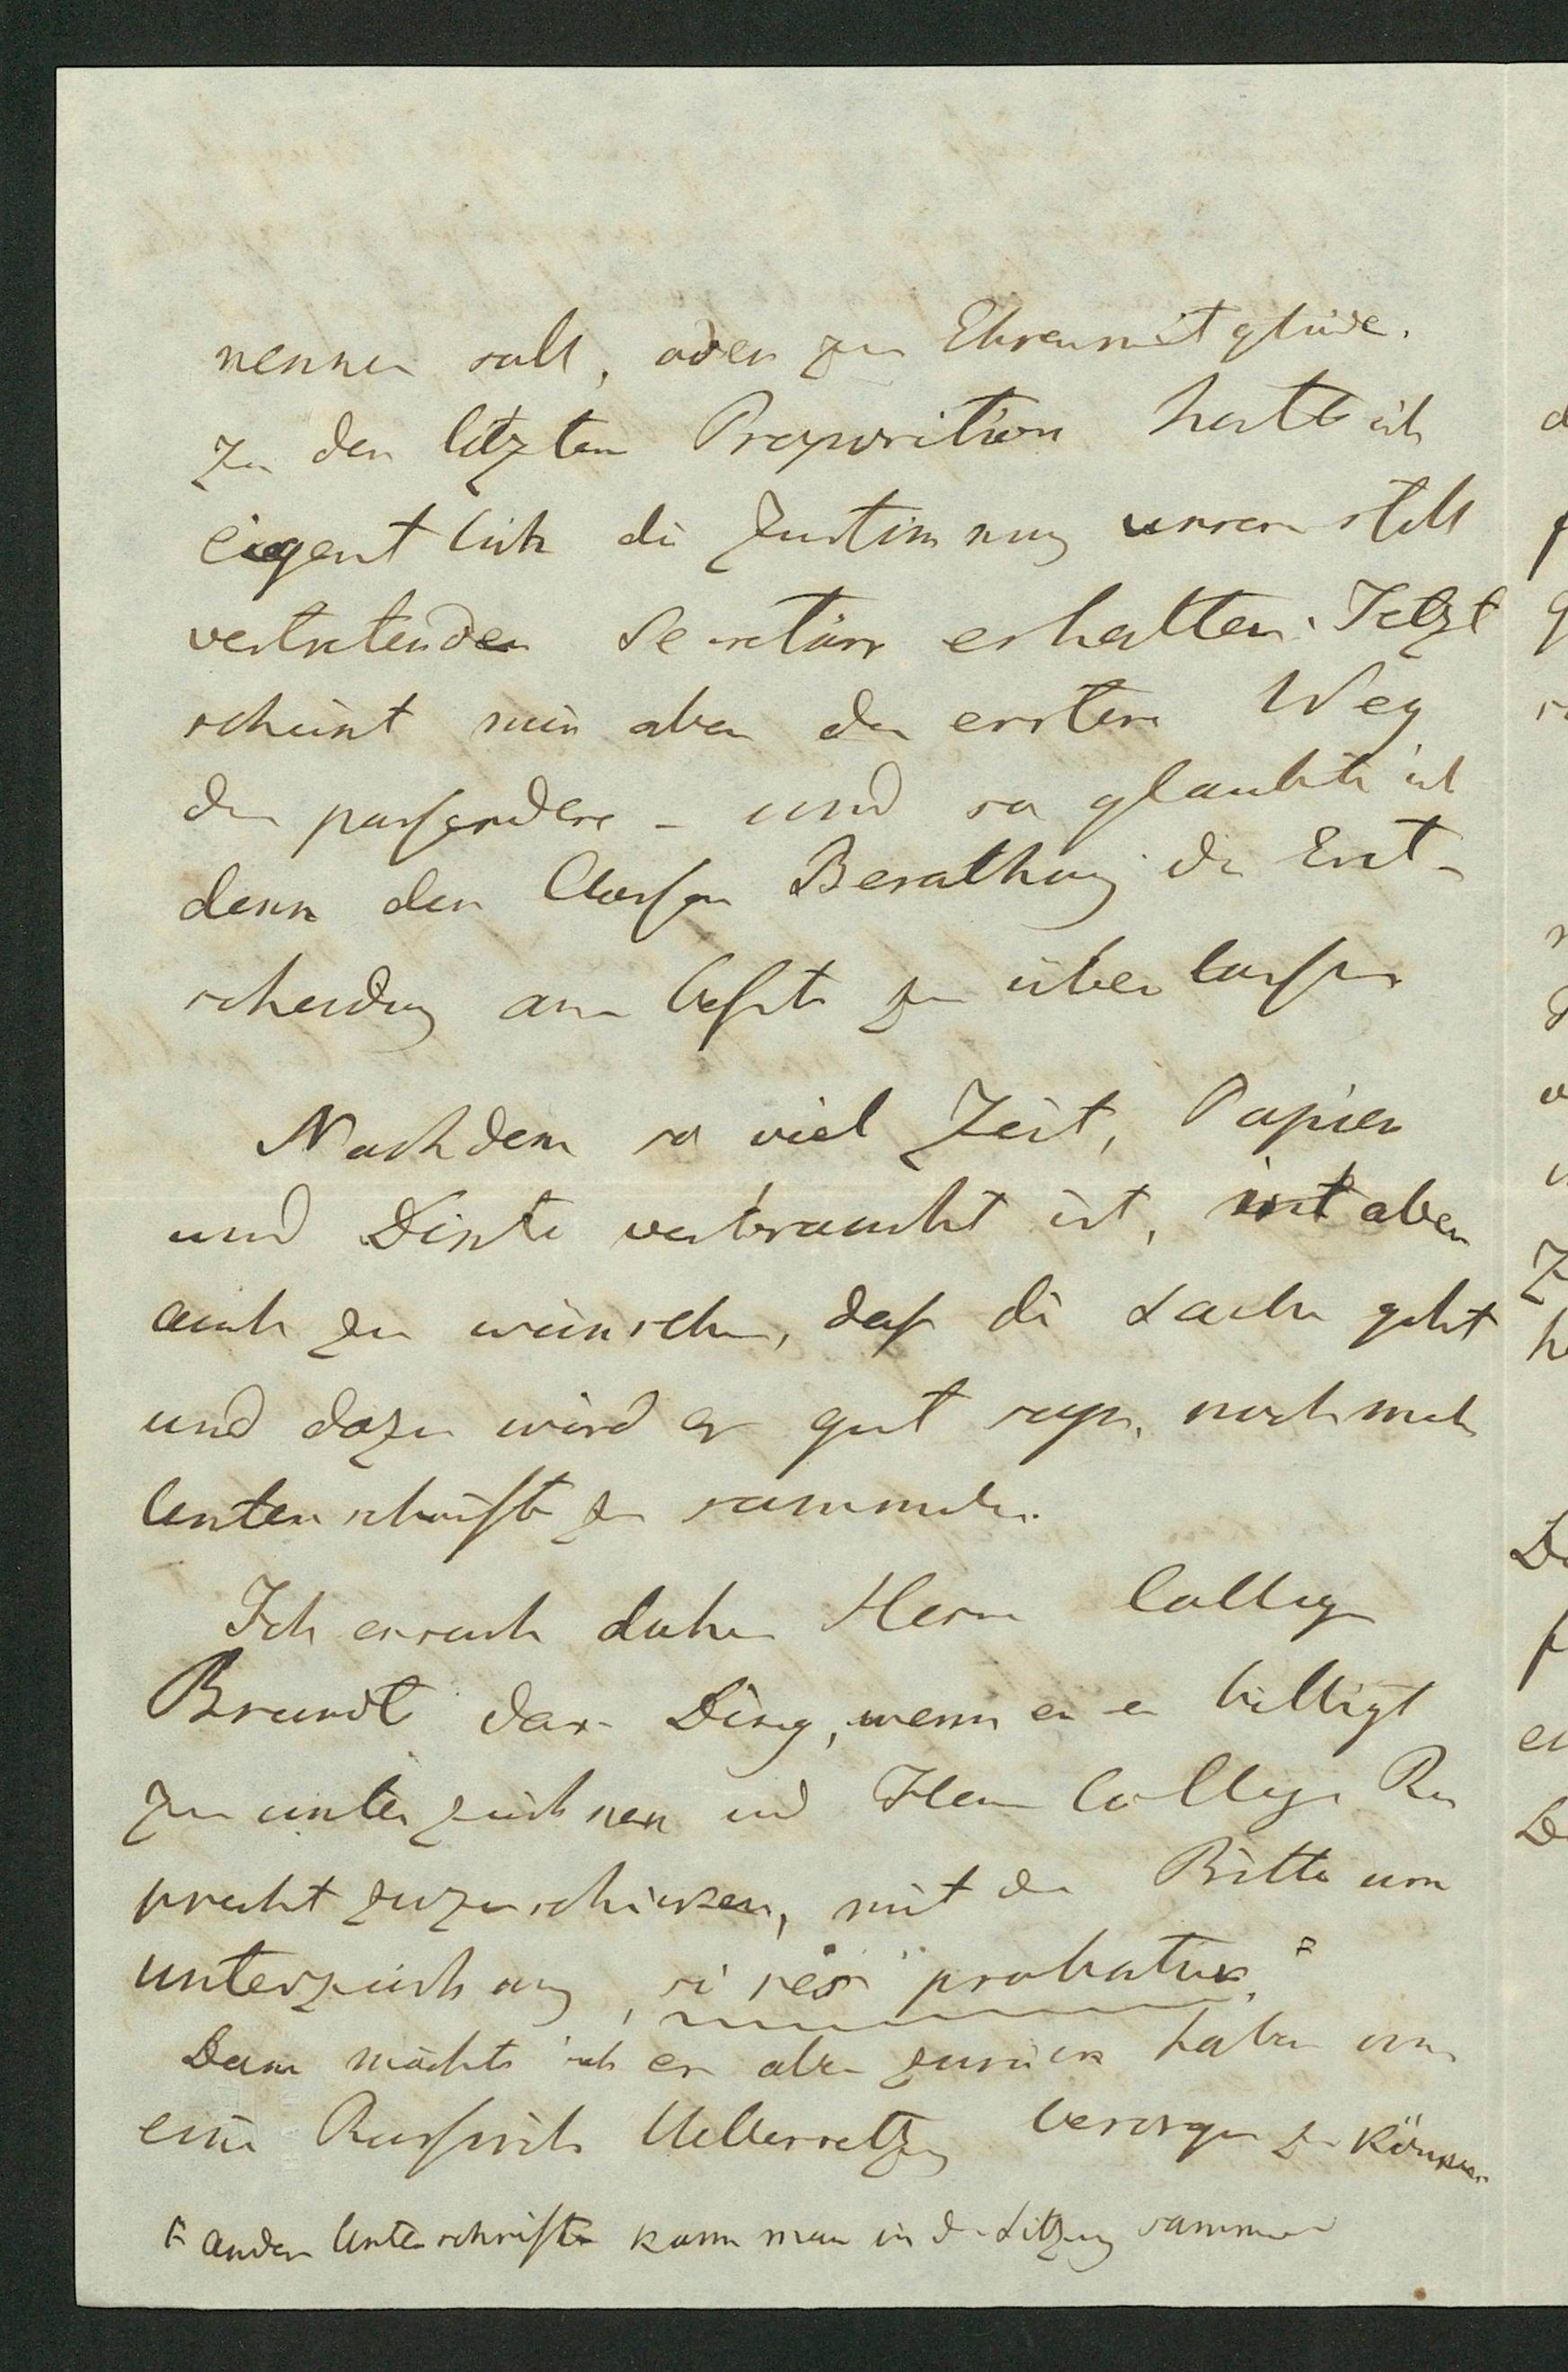 nennen soll, oder zu Ehrenmitgliede.
Zu der letzten Proposition hatte ich
eigentlich die Zustimmung unseres stell
vertretenden Secretärs erhalten. Jetzt
scheint mir aber der erstere Weg
der passendere – und so glaubte ich
denn der Classen Berathung die Ent-
scheidung am beste zu überlassen
Nachdem so viel Zeit, Papier
und Dinte verbraucht ist, ist aber
auch zu wünschen, dass die Sache geht
und dazu wird es gut seyn, noch mehr
Unterschrifte zu sammeln.
Ich ersuche daher Herrn Collegen
Brandt das Ding, wenn er es billigt
zu unterzeichnen und Herrn Collegen Ru
precht zuzuschicken, mit der Bitte um
Unterzeichnung, si res probatur.*
Dann möchte ich es aber zurück haben um
eine Russische Uebersetzung besorgen zu können
* andere Unterschriften kann man in der Sitzung sammeln